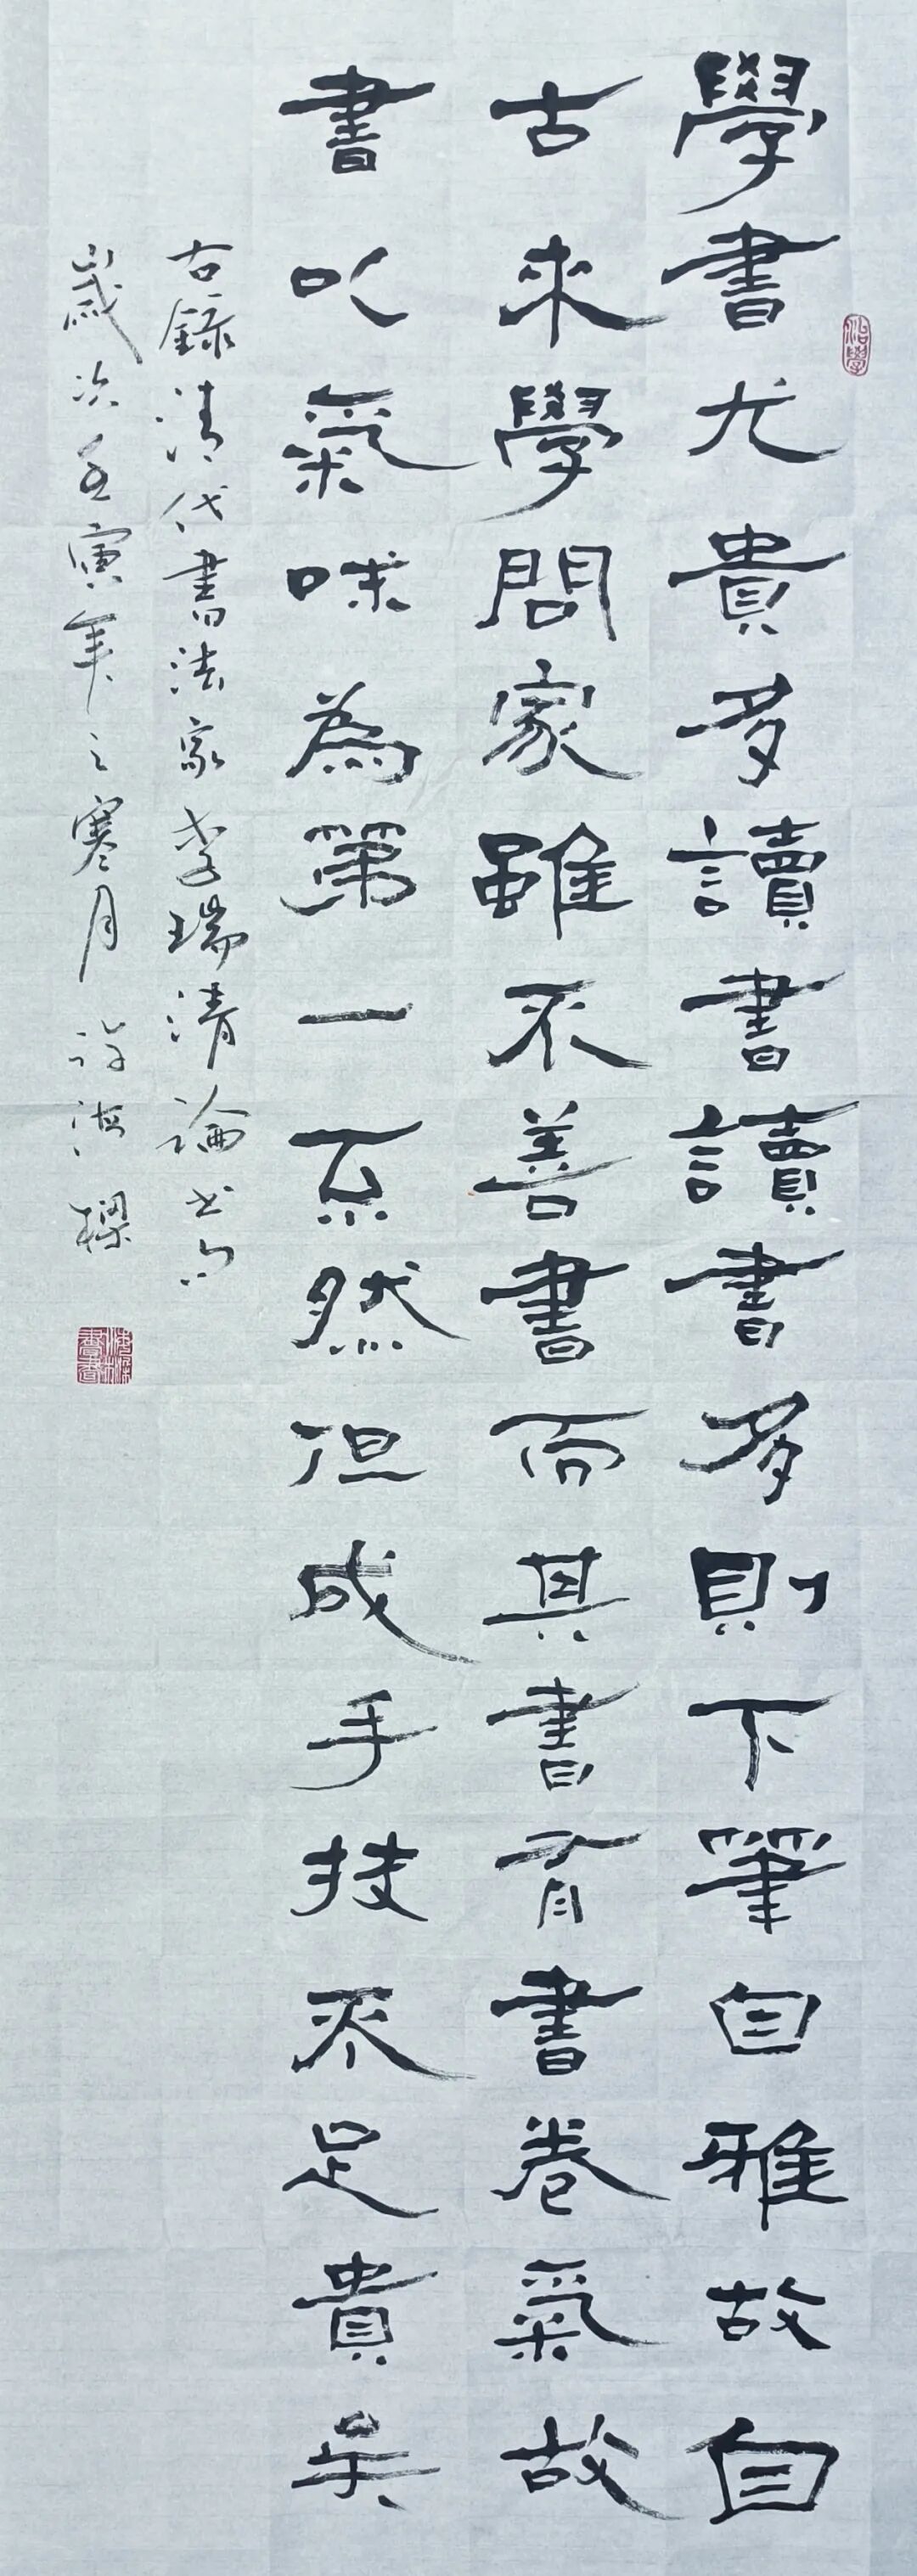 學書尤貴多讀書讀書多則下筆自雅故自
古來學問家雖不善書而其書有書卷氣故
書以氣味為第一不然但成手技不足貴矣
右錄清代書法家李瑞清論書句
歲次壬寅年之寒月許洪樑